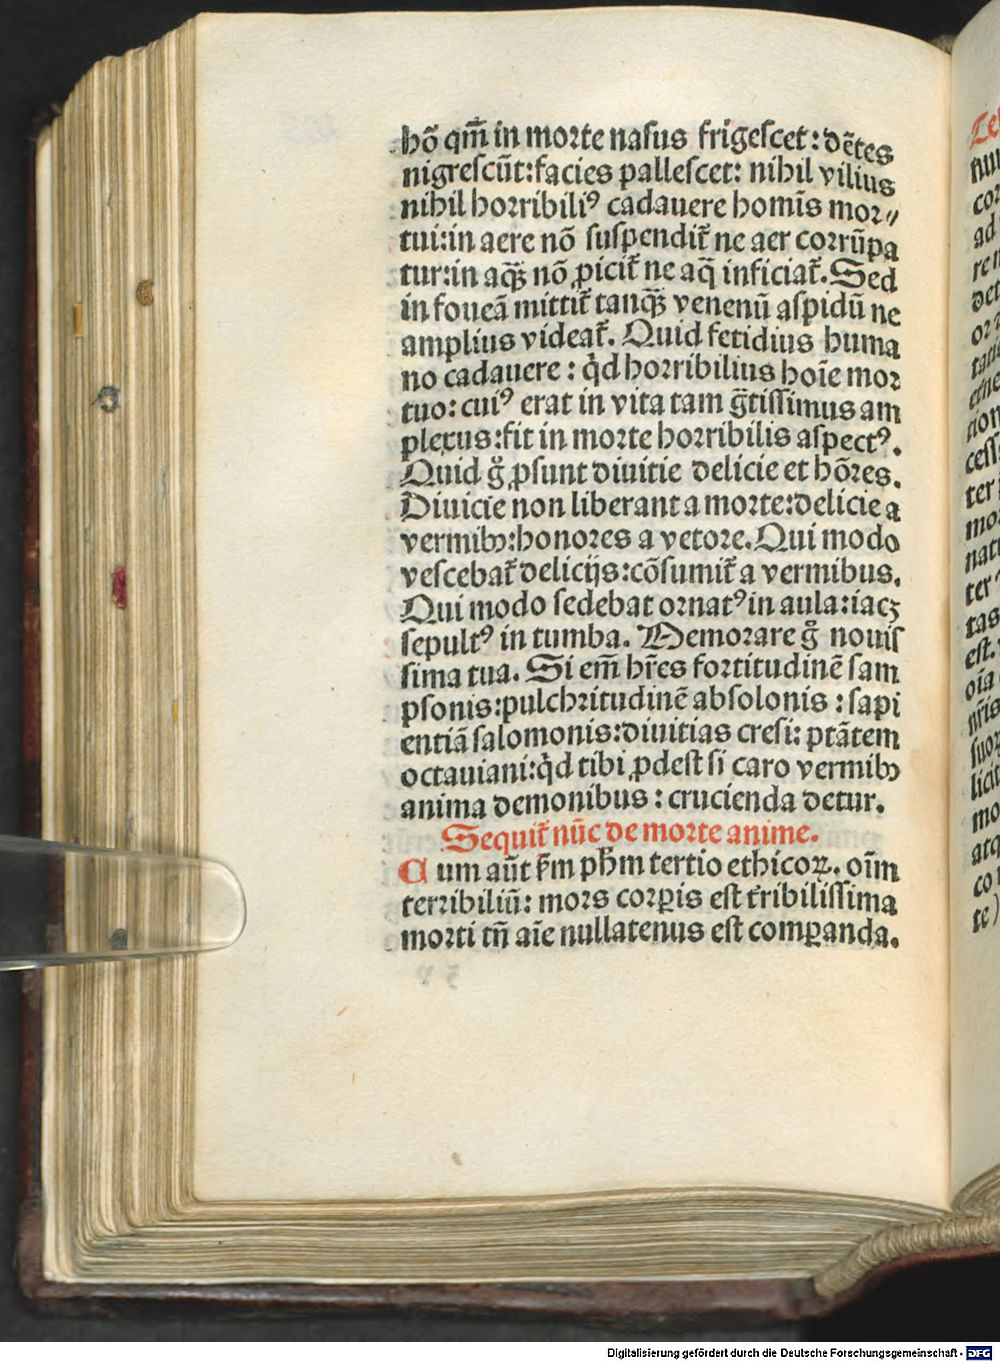 hō qm̄ in morte nasus frigescet: dētes
nigrescūt: facies pallescet: nihil vilius
nihil horribiliꝰ cadauere homīs mor⸗
tui: in aere nō suspendit̄ ne aer corrūpa
tur: in aqꝫ nō ꝓicit̄ ne aq̄ inficiat̄. Sed
in foueā mittit̄ tanqꝫ venenū aspidū ne
amplius videat̄. Quid fetidius huma
no cadauere: qͥd horribilius hoīe mor
tuo: cuiꝰ erat in vita tam gͣtissimus am
plexus: fit in morte horribilis aspectꝰ.
Quid gͦ ꝓsunt diuitie delicie et hōres.
Diuicie non liberant a morte: delicie a
vermibꝫ: honores a vetore. Qui modo
vescebat̄ delicijs: cōsumit̄ a vermibus.
Qui modo sedebat ornatꝰ in aula: iacꝫ
sepultꝰ in tumba. Memorare gͦ nouis
sima tua. Si em̄ hr̄es fortitudinē sam
psonis: pulchritudinē absolonis: sapi
entiā salomonis: diuitias cresi: ptātem
octauiani: qͥd tibi ꝓdest si caro vermibꝫ
anima demonibus: crucienda detur.
Sequit̄ nūc de morte anime.
Cum aūt ẜm pħm tertio ethicoꝝ. oīm
terribiliū: mors corꝑis est t̄ribilissima
morti tn̄ aīe nullatenus est comꝑanda.
Te
nu
cor
ad
re n
det
or
tati
erne
tion
cess
ter i
mo
nat
ter
tas
est.
oīa
pr̄is
suo
licit
mo
atq
co
te)
Digitalisierung gefördert durch die Deutsche Forschungsgemeinschaft - DFG